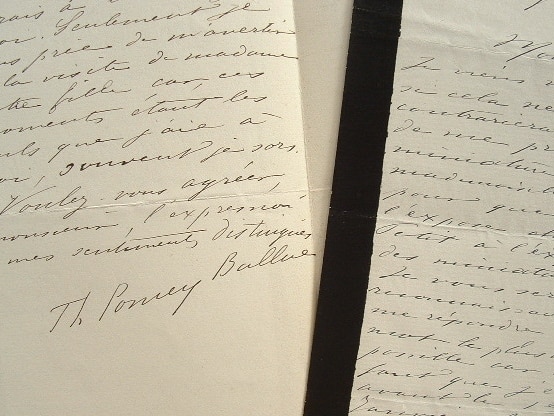 Seulement je
prie de m'avertir
la visite de madame
fille car, ces
moments étant les
que j'aie à
moi, souvent je sors.
Voulez-vous agréer,
monsieur, l'expression
mes sentiments distingués
Th Pomey Ballue
Je viens
si cela ne
contrarierait
de me pr
miniature
mademoise
pour que
l'expose ch
Petit à l'ex
des miniat
Je vous ser
reconnaissan
me répondre
mot le plus
possible car
faut que j'
avant le